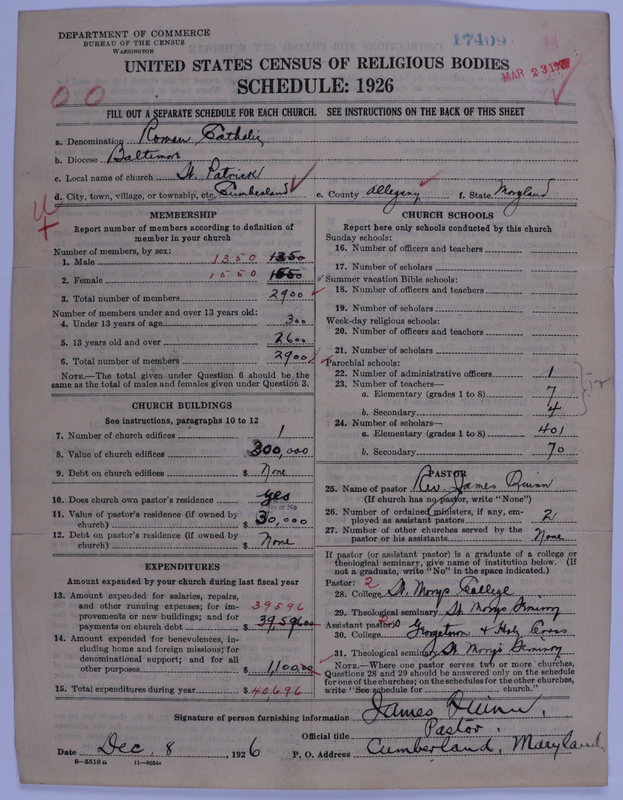 DEPARTMENT OF COMMERCE
BUREAU OF THE CENSUS
WASHINGTON
17409
MAR 23 192
UNITED STATES CENSUS OF RELIGIOUS BODIES
SCHEDULE: 1926
00
FILL OUT A SEPARATE SCHEDULE FOR EACH CHURCH. SEE INSTRUCTIONS ON THE BACK OF THIS SHEET
a. Denomination Roman Catholic
b. Diocese Baltimore
c. Local name of church St. Patrick
d. City, town, village, or township, etc. Cumberland e. County Allegany f. State Maryland
MEMBERSHIP
Report number of members according to definition of
member in your church
Number of members, by sex:
1. Male 1350 1350
2. Female 1550 1550
3. Total number of members 2900
Number of members under and over 13 years old:
4. Under 13 years of age 300
5. 13 years old and over 2600
6. Total number of members 2900
NOTE.—The total given under Question 6 should be the
same as the total of males and females given under Question 3.
CHURCH BUILDINGS
See instructions, paragraphs 10 to 12
7. Number of church edifices 1
8. Value of church edifices $ 300,000
9. Debt on church edifices $ None
10. Does church own pastor's residence yes
Yes or No
11. Value of pastor's residence (if owned by
church) $ 30,000
12. Debt on pastor's residence (if owned by
church) $ None
EXPENDITURES
Amount expended by your church during last fiscal year
13. Amount expended for salaries, repairs,
and other running expenses; for im-
provements or new buildings; and for
payments on church debt $ 39596 39,596.00
14. Amount expended for benevolences, in-
cluding home and foreign missions; for
denominational support; and for all
other purposes $ 1,100.00
15. Total expenditures during year $ 40,696
CHURCH SCHOOLS
Report here only schools conducted by this church
Sunday schools:
16. Number of officers and teachers
17. Number of scholars
Summer vacation Bible schools:
18. Number of officers and teachers
19. Number of scholars
Week-day religious schools:
20. Number of officers and teachers
21. Number of scholars
Parochial schools:
22. Number of administrative officers 1
23. Number of teachers—
a. Elementary (grades 1 to 8) 7
b. Secondary 4
12
24. Number of scholars—
a. Elementary (grades 1 to 8) 401
b. Secondary 70
PASTOR
25. Name of pastor Rev. James Quinn
(If church has no pastor, write "None")
26. Number of ordained ministers, if any, em-
ployed as assistant pastors 2
27. Number of other churches served by the
pastor or his assistants None
If pastor (or assistant pastor) is a graduate of a college or
theological seminary, give name of institution below. (If
not a graduate, write "No" in the space indicated.)
Pastor: 2
28. College St. Marys College
29. Theological seminary St. Marys Seminary
Assistant pastor: 2
30. College Georgetown & Holy Cross
31. Theological seminary St. Marys Seminary
NOTE.—Where one pastor serves two or more churches,
Questions 28 and 29 should be answered only on the schedule
for one of the churches; on the schedules for the other churches,
write "See schedule for church."
Signature of person furnishing information James Quinn,
Official title Pastor,
Date Dec. 8, 1926 P. O. Address Cumberland, Maryland
8—5518a